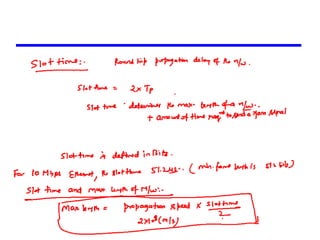 Slot time:. Round trip propagation delay of the n/w.
Slot time = 2x Tp
Slot time determines the max. length of a n/w.
+ amount of time reqd to send a jam signal
Slot time is defined in bits.
For 10 Mbps Ethernet, the slot time 51.2µs. (min. frame length is 512 bits)
Slot time and max length of N/w:-
Max length = propagation speed x slot time
2
2x10^8 (m/s)